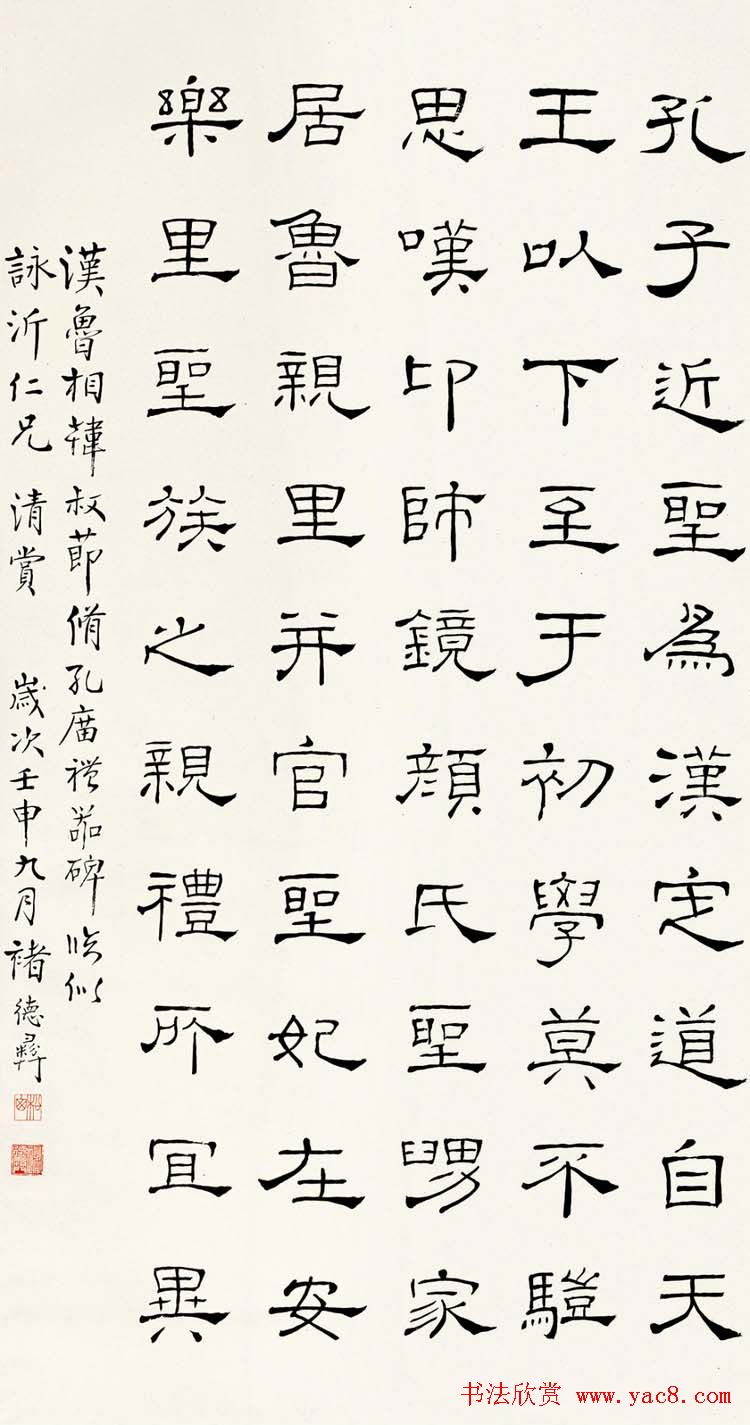 孔子近聖為漢定道自天
王以下至于初學莫不驥
思嘆卬師鏡顏氏聖舅家
居魯親里并官聖妃在安
樂里聖族之親禮所宜異
漢魯相韓叔節脩孔廟禮器碑臨似
詠沂仁兄 清賞 歲次壬申九月褚德彝
书法欣赏 www.yac8.com